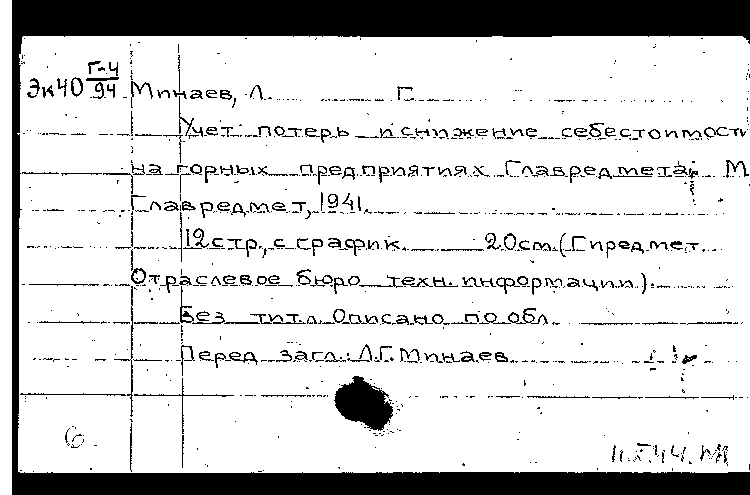 Эк40 Г-4/94 Минаев, Л. Г.
Учет потерь и снижение себестоимости
на горных предприятиях Главредмета. М
Главредмет, 1941.
12 стр., с график. 20 см. (Гиредмет.
Отраслевое бюро техн. информации).
Без титл. Описано по обл.
Перед загл.: Л.Г. Минаев.
6